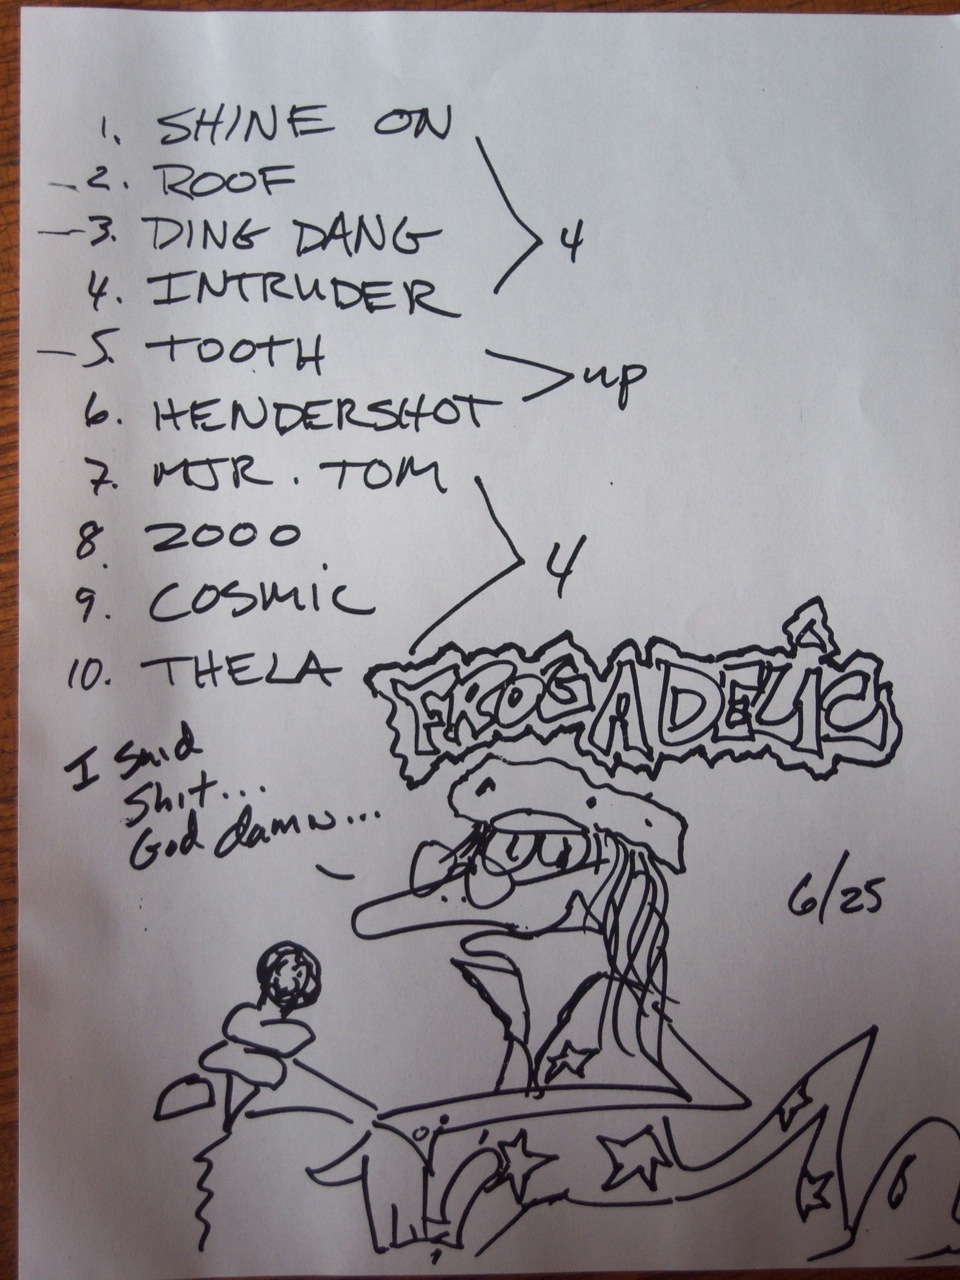 1. SHINE ON
2. ROOF
3. DING DANG
4. INTRUDER
4
5. TOOTH
6. HENDERSHOT
up
7. MJR. TOM
8. 2000
9. COSMIC
10. THELA
4
FROGADELIC
I said
shit...
God damn...
6/25